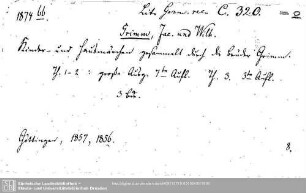 1874 66.
Litt. Germ. rec. C. 320.
Grimm, Jac. und Wilh.
Kinder- und Hausmärchen gesammelt durch die Brüder Grimm.
Th. 1-2 : große Ausg. 7te Aufl. Th. 3. 3te Aufl.
3 Bde.
Göttingen, 1857, 1856.
8.
Sächsische Landesbibliothek -
Staats- und Universitätsbibliothek Dresden